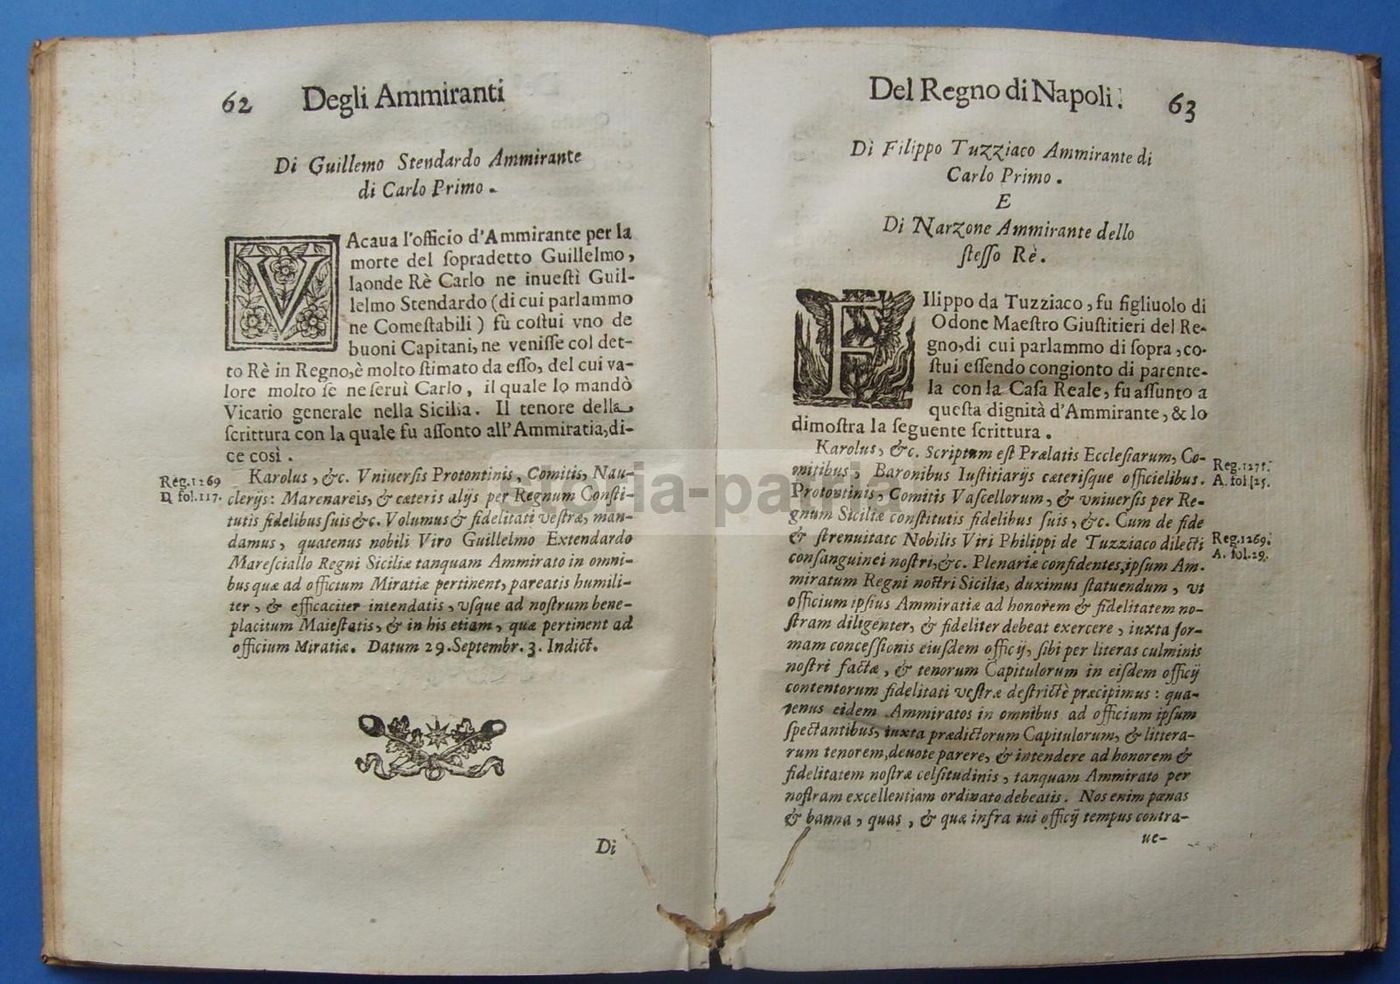 62 Degli Ammiranti
Di Guillemo Stendardo Ammirante
di Carlo Primo.
VAcaua l'officio d'Ammirante per la
morte del sopradetto Guillelmo,
laonde Rè Carlo ne inuestì Guil-
lelmo Stendardo (di cui parlammo
ne Comestabili) fù costui vno de
buoni Capitani, ne venisse col det-
to Rè in Regno, è molto stimato da esso, del cui va-
lore molto se ne seruì Carlo, il quale lo mandò
Vicario generale nella Sicilia. Il tenore della
scrittura con la quale fu assonto all'Ammiratia, di-
ce così.
Reg. 1269
D fol. 117.
Karolus, &c. Vniuersis Protontinis, Comitis, Nau-
clerijs: Marenareis, & cæteris alijs per Regnum Consti-
tutis fidelibus suis &c. Volumus & fidelitati vestræ, man-
damus, quatenus nobili Viro Guillelmo Extendardo
Maresciallo Regni Siciliæ tanquam Ammirato in omni-
bus quæ ad officium Miratiæ pertinent, pareatis humili-
ter, & efficaciter intendatis, vsque ad nostrum bene-
placitum Maiestatis, & in his etiam, quæ pertinent ad
officium Miratiæ. Datum 29. Septembr. 3. Indict.
Di
Del Regno di Napoli. 63
Di Filippo Tuzziaco Ammirante di
Carlo Primo.
E
Di Narzone Ammirante dello
stesso Rè.
FIlippo da Tuzziaco, fu figliuolo di
Odone Maestro Giustitieri del Re-
gno, di cui parlammo di sopra, co-
stui essendo congionto di parente-
la con la Casa Reale, fu assunto a
questa dignità d'Ammirante, & lo
dimostra la seguente scrittura.
Karolus, &c. Scriptum est Prælatis Ecclesiarum, Co-
mitibus, Baronibus Iustitiarijs cæterisque officielibus.
Protontinis, Comitis Vascellorum, & vniuersis per Re-
gnum Siciliæ constitutis fidelibus suis, &c. Cum de fide
& strenuitate Nobilis Viri Philippi de Tuzziaco dilecti
consanguinei nostri, &c. Plenariæ confidentes, ipsum Am-
miratum Regni nostri Siciliæ, duximus statuendum, vt
officium ipsius Ammiratiæ ad honorem & fidelitatem no-
stram diligenter, & fideliter debeat exercere, iuxta for-
mam concessionis eiusdem officij, sibi per literas culminis
nostri factæ, & tenorum Capitulorum in eisdem officij
contentorum fidelitati vestræ destrictè præcipimus: qua-
tenus eidem Ammiratos in omnibus ad officium ipsum
spectantibus, iuxta prædictorum Capitulorum, & littera-
rum tenorem, deuote parere, & intendere ad honorem &
fidelitatem nostræ celsitudinis, tanquam Ammirato per
nostram excellentiam ordinato debeatis. Nos enim pænas
& banna, quas, & quæ infra tui officij tempus contra-
ue-
Reg. 1271.
A. fol 25.
Reg. 1269.
A. fol. 29.